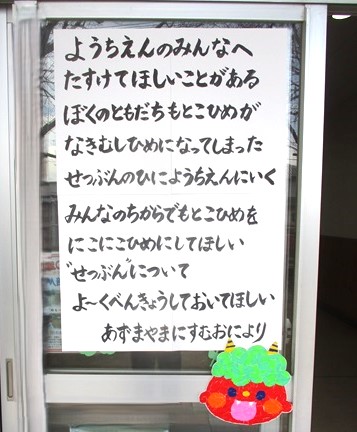 ようちえんのみんなへ
たすけてほしいことがある
ぼくのともだちもとこひめが
なきむしひめになってしまった
せつぶんのひにようちえんにいく
みんなのちからでもとこひめを
にこにこひめにしてほしい
"せつぶん"について
よ～くべんきょうしておいてほしい
あずまやまにすむおにより